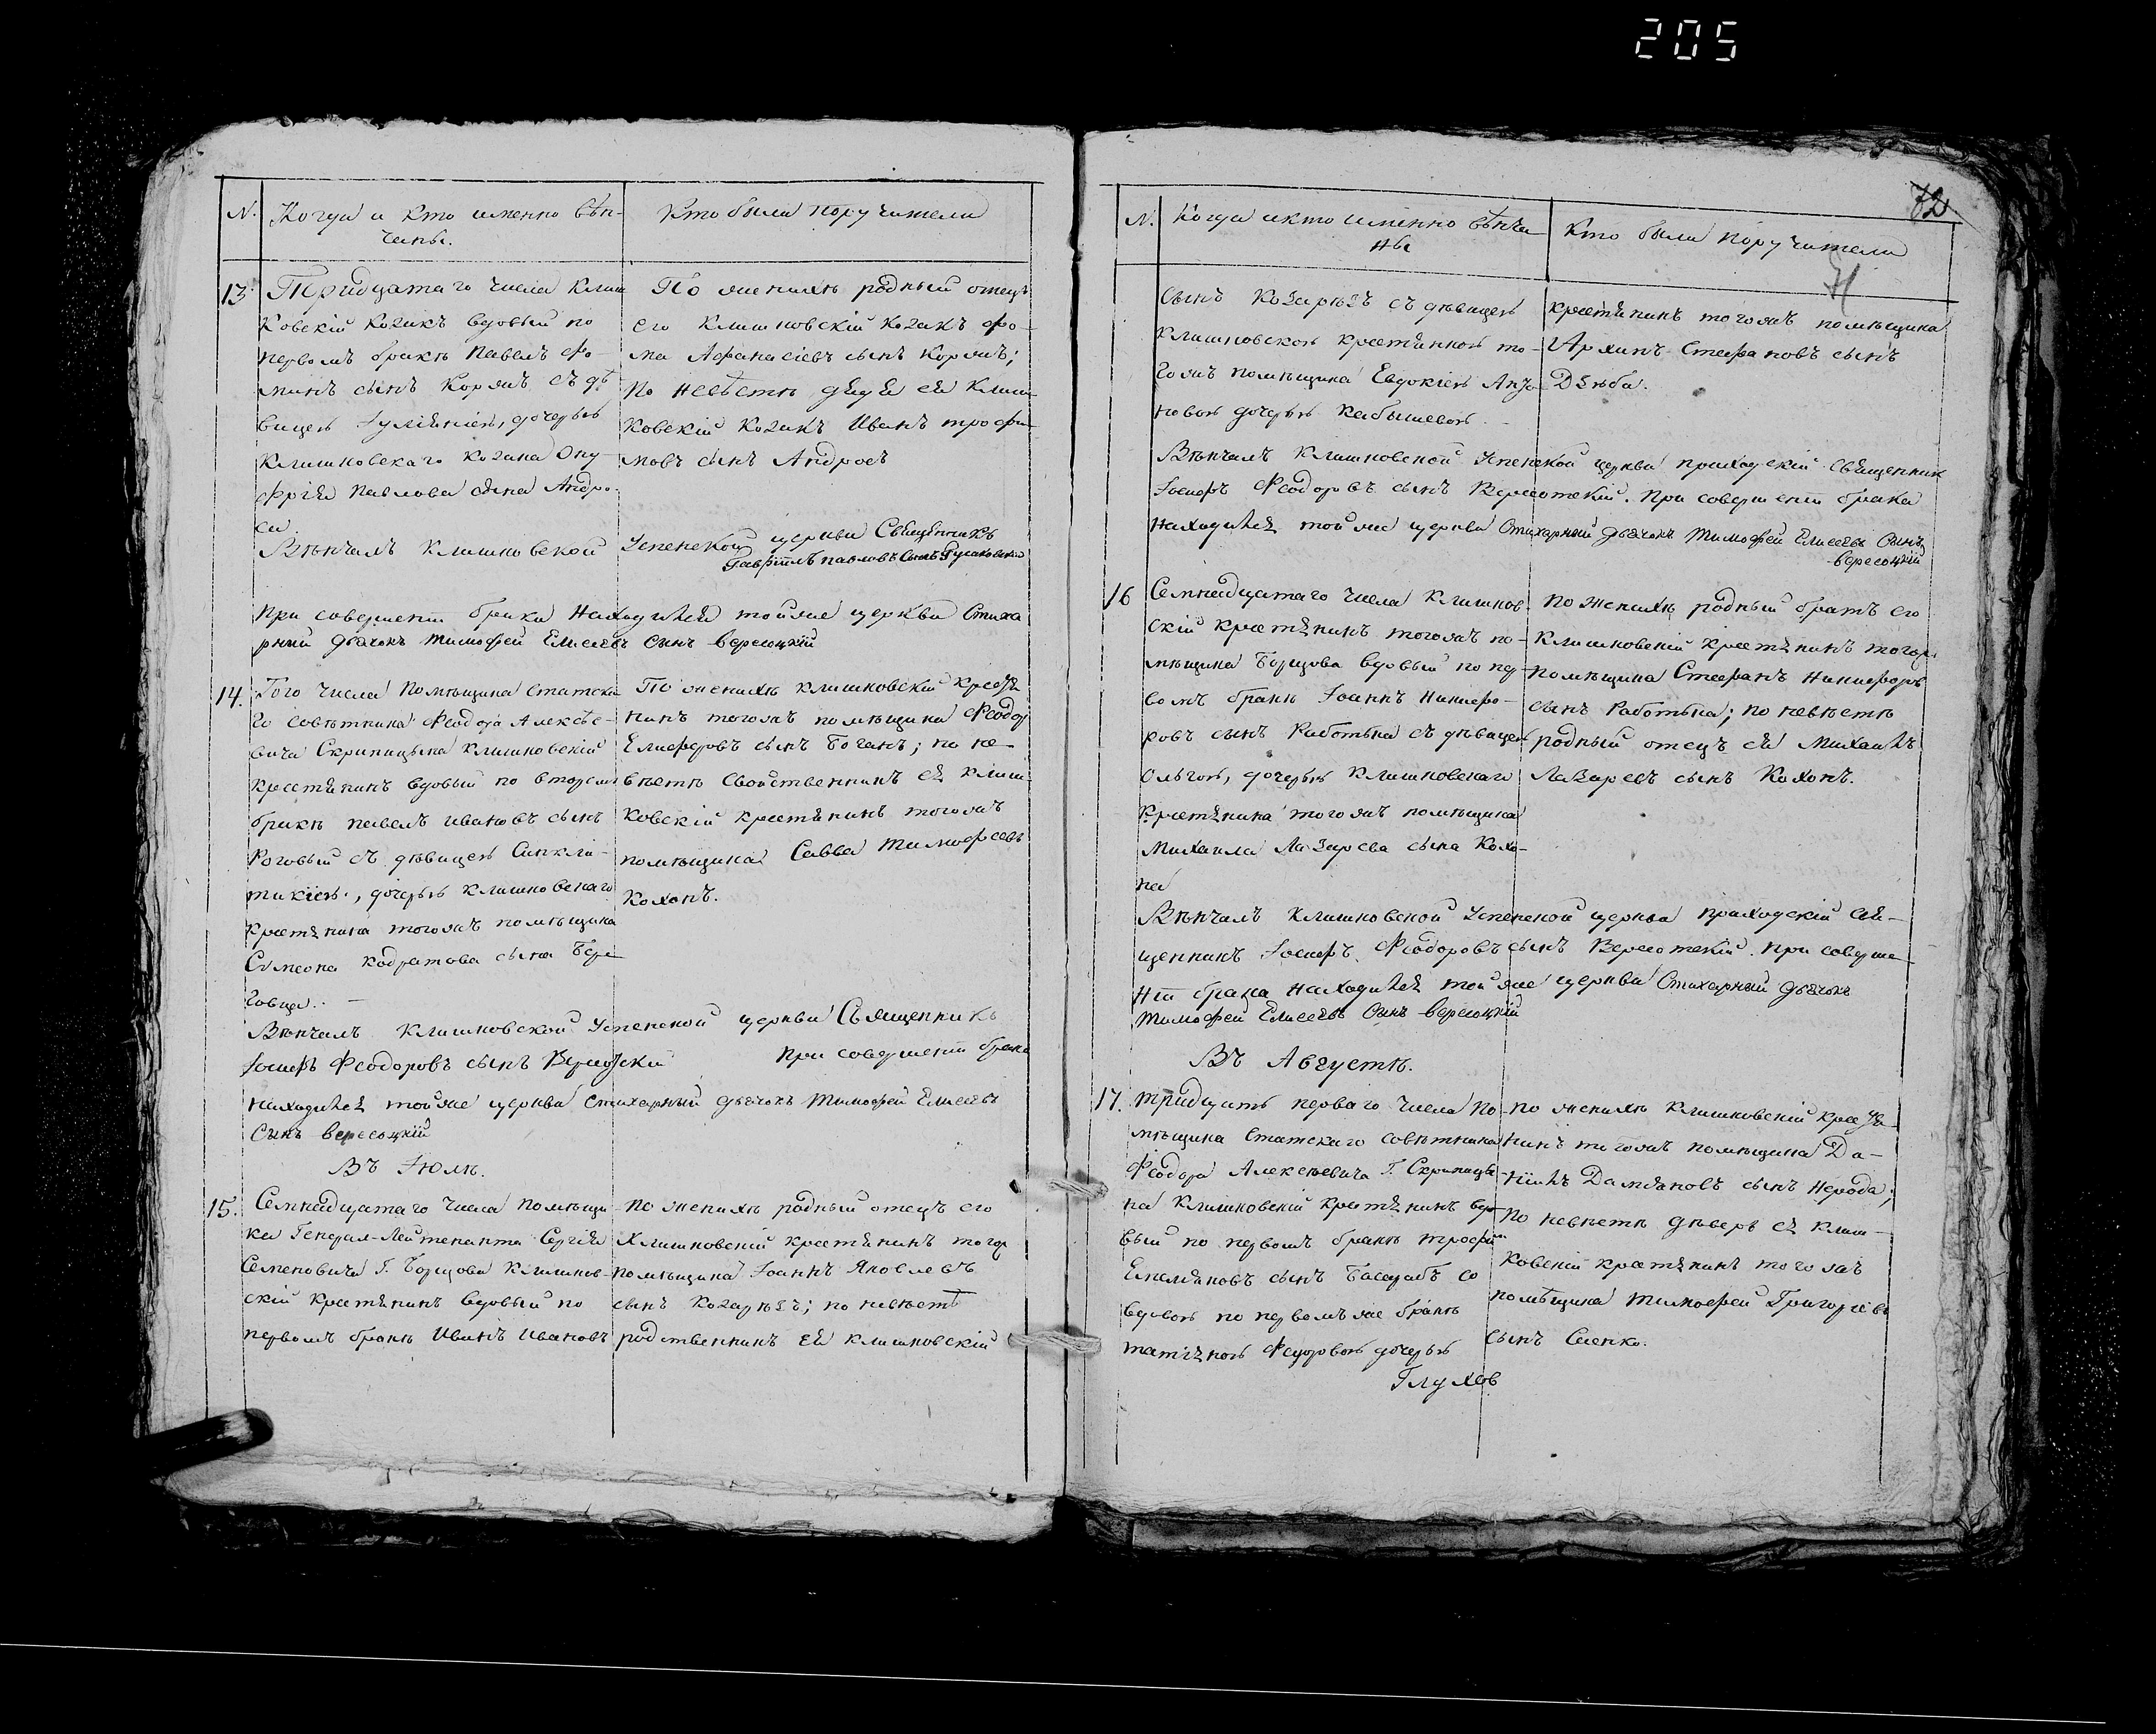 205
N.
Когда и кто именно вѣн-
чаны.
Кто были поручители
13.
Тридцатаго числа Клиш
ковскій козакъ вдовый по
первомъ бракѣ Павелъ Фо-
минъ сынъ Коржъ съ дѣ
вицею Іуліяніею, дочерью
Клишковскаго козака Ону-
фрія Павлова сына Андро-
са
По женихѣ родный отецъ
его Клишковскій козакъ Фо-
ма Афанасіевъ сынъ Коржъ;
по невѣстѣ дядя ея Клиш-
ковскій козакъ Иванъ Трофи-
мовъ сынъ Андросъ
Вѣнчалъ Клишковской Успенской церкви Священникъ
Гавріилъ Павловъ Сынъ
При совершеніи брака находился тойже церкви Стиха
рный дьячокъ Тимофей Елисеевъ Сынъ Вересоцкій
14.
Того числа помѣщика Статска
го совѣтника Феодора Алексѣе-
вича Скрипицына Клишковскій
крестянинъ вдовый по второмъ
бракѣ Павелъ Ивановъ сынъ
Роговый съ дѣвицею Синкли-
тикіею, дочерью Клишковскаго
крестянина тогожъ помѣщика
Симеона Кодратова сына Бере-
говца.
По женихѣ Клишковскій крестя
нинъ тогожъ помѣщика Феодор
Елиферовъ сынъ Боганъ; по не-
вѣстѣ свойственникъ ея Клиш-
ковскій крестянинъ тогожъ
помѣщика Савва Тимофеевъ
Кохонъ.
Вѣнчалъ Клишковской Успенской церкви Священникъ
Іосифъ Феодоровъ сынъ Вересоцкій При совершеніи брака
находился тойже церкви Стихарный дьячокъ Тимофей Елисеевъ
Сынъ Вересоцкій
Въ Іюлѣ.
15.
Семнадцатаго числа помѣщи
ка Генерал-Лейтенанта Сергія
Семеновича Г. Борщова Клишков-
скій крестянинъ вдовый по
первомъ бракѣ Иванъ Ивановъ
По женихѣ родный отецъ его
Клишковскій крестянинъ тогож
помѣщика Іоаннъ Яковлевъ
сынъ Козарѣзъ; по невѣстѣ
родственникъ ея Клишковскій
72
71
N.
Когда и кто именно вѣнча
ны
Кто были поручители
сынъ Козарѣзъ съ дѣвицею
Клишковскою крестянкою то-
гожъ помѣщика Евдокіею
новою дочерью Кабышевою.
крестянинъ тогожъ помѣщика
Архипъ Стефановъ сынъ
Дзюба.
Вѣнчалъ Клишковской Успенской церкви приходскій священник
Іосифъ Феодоровъ сынъ Вересотскій. При совершеніи брака
находился тойже церкви Стихарный дьячокъ Тимофей Елисеевъ Сынъ
Вересоцкій
16
Семнадцатаго числа Клишков-
скій крестянинъ тогожъ по-
мѣщика Борщова вдовый по пер-
вомъ бракѣ Іоаннъ Никифо-
ровъ сынъ Работька съ дѣвицею
Ольгою, дочерью Клишковскаго
крестянина тогожъ помѣщика
Михаила Лазарева сына Кохо-
на
По женихѣ родный братъ его
Клишковскій крестянинъ тогож
помѣщика Стефанъ Никифоровъ
сынъ Работька; по невѣстѣ
родный отецъ ея Михаилъ
Лазаревъ сынъ Кохонъ.
Вѣнчалъ Клишковской Успенской церкви приходскій свя-
щенникъ Іосифъ Феодоровъ сынъ Вересотскій. При соверше-
ніи брака находился тойже церкви Стихарный дьячокъ
Тимофей Елисеевъ Сынъ Вересоцкій
Въ Августѣ.
17.
Тридцать перваго числа по-
мѣщика Статскаго совѣтника
Феодора Алексѣевича Г. Скрипицы-
на Клишковскій крестянинъ вдо-
вый по первомъ бракѣ Трофим
Емеляновъ сынъ Басарабъ со
вдовою по первомъ же бракѣ
Татіяною Федоровою дочерью
Глухов
по женихѣ Клишковскій крестя-
нинъ тогожъ помѣщика Да-
ніилъ Даміяновъ сынъ Нерода;
по невѣстѣ дѣверь ея Клиш-
ковскій крестянинъ тогожъ
помѣщика Тимофей Григоріевъ
сынъ Саенко.